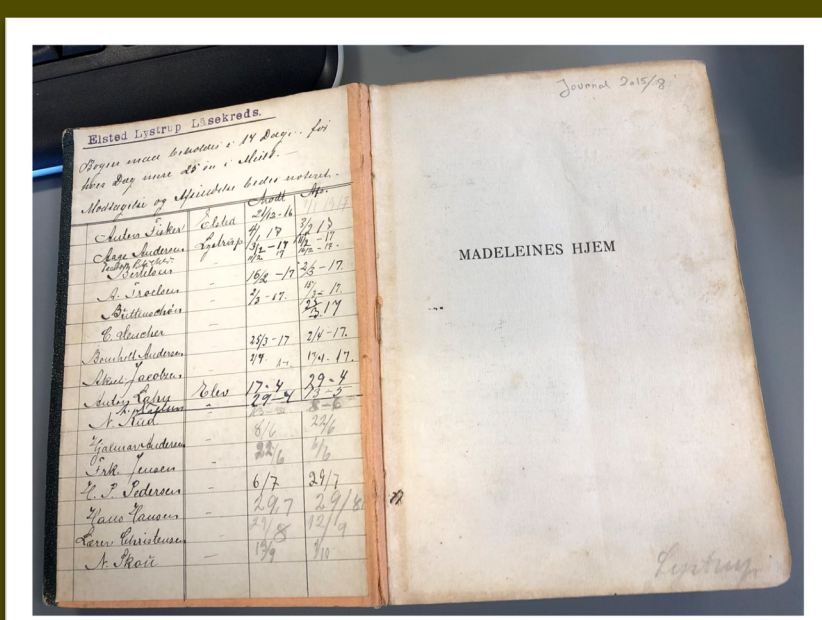 Elsted Lystrup Läsekreds.
Bogen maa beholdes i 14 Dage. for
hver Dag mere 25 øre i Mulkt.
Modtagelse og Afsendelse bedes noteret.
Modt Afs.
Anders Fisker Elsted 21/12-16
Aage Andersen Lystrup 4/1 17 3/2 17
Bertelsen
A. Troelsen 16/2 - 17 2/3 - 17.
Büttenschøn 2/3 - 17.
C. 
Bomholt Andersen 25/3 - 17 2/4 - 17.
Aksel Jacobsen 2/4 17/4 - 17.
Anton Elev 17-4 29-4
29-4 13-5
N. Rud 8-6
Hjalmar Andersen 8/6 22/6
Frk. Jensen 22/6
H. P. Pedersen 6/7 29/7
Hans Hansen 29/7 29/8
Lærer Christensen 29/8 12/9
N. Skou
Journal 2015/8
MADELEINES HJEM
Lystrup.